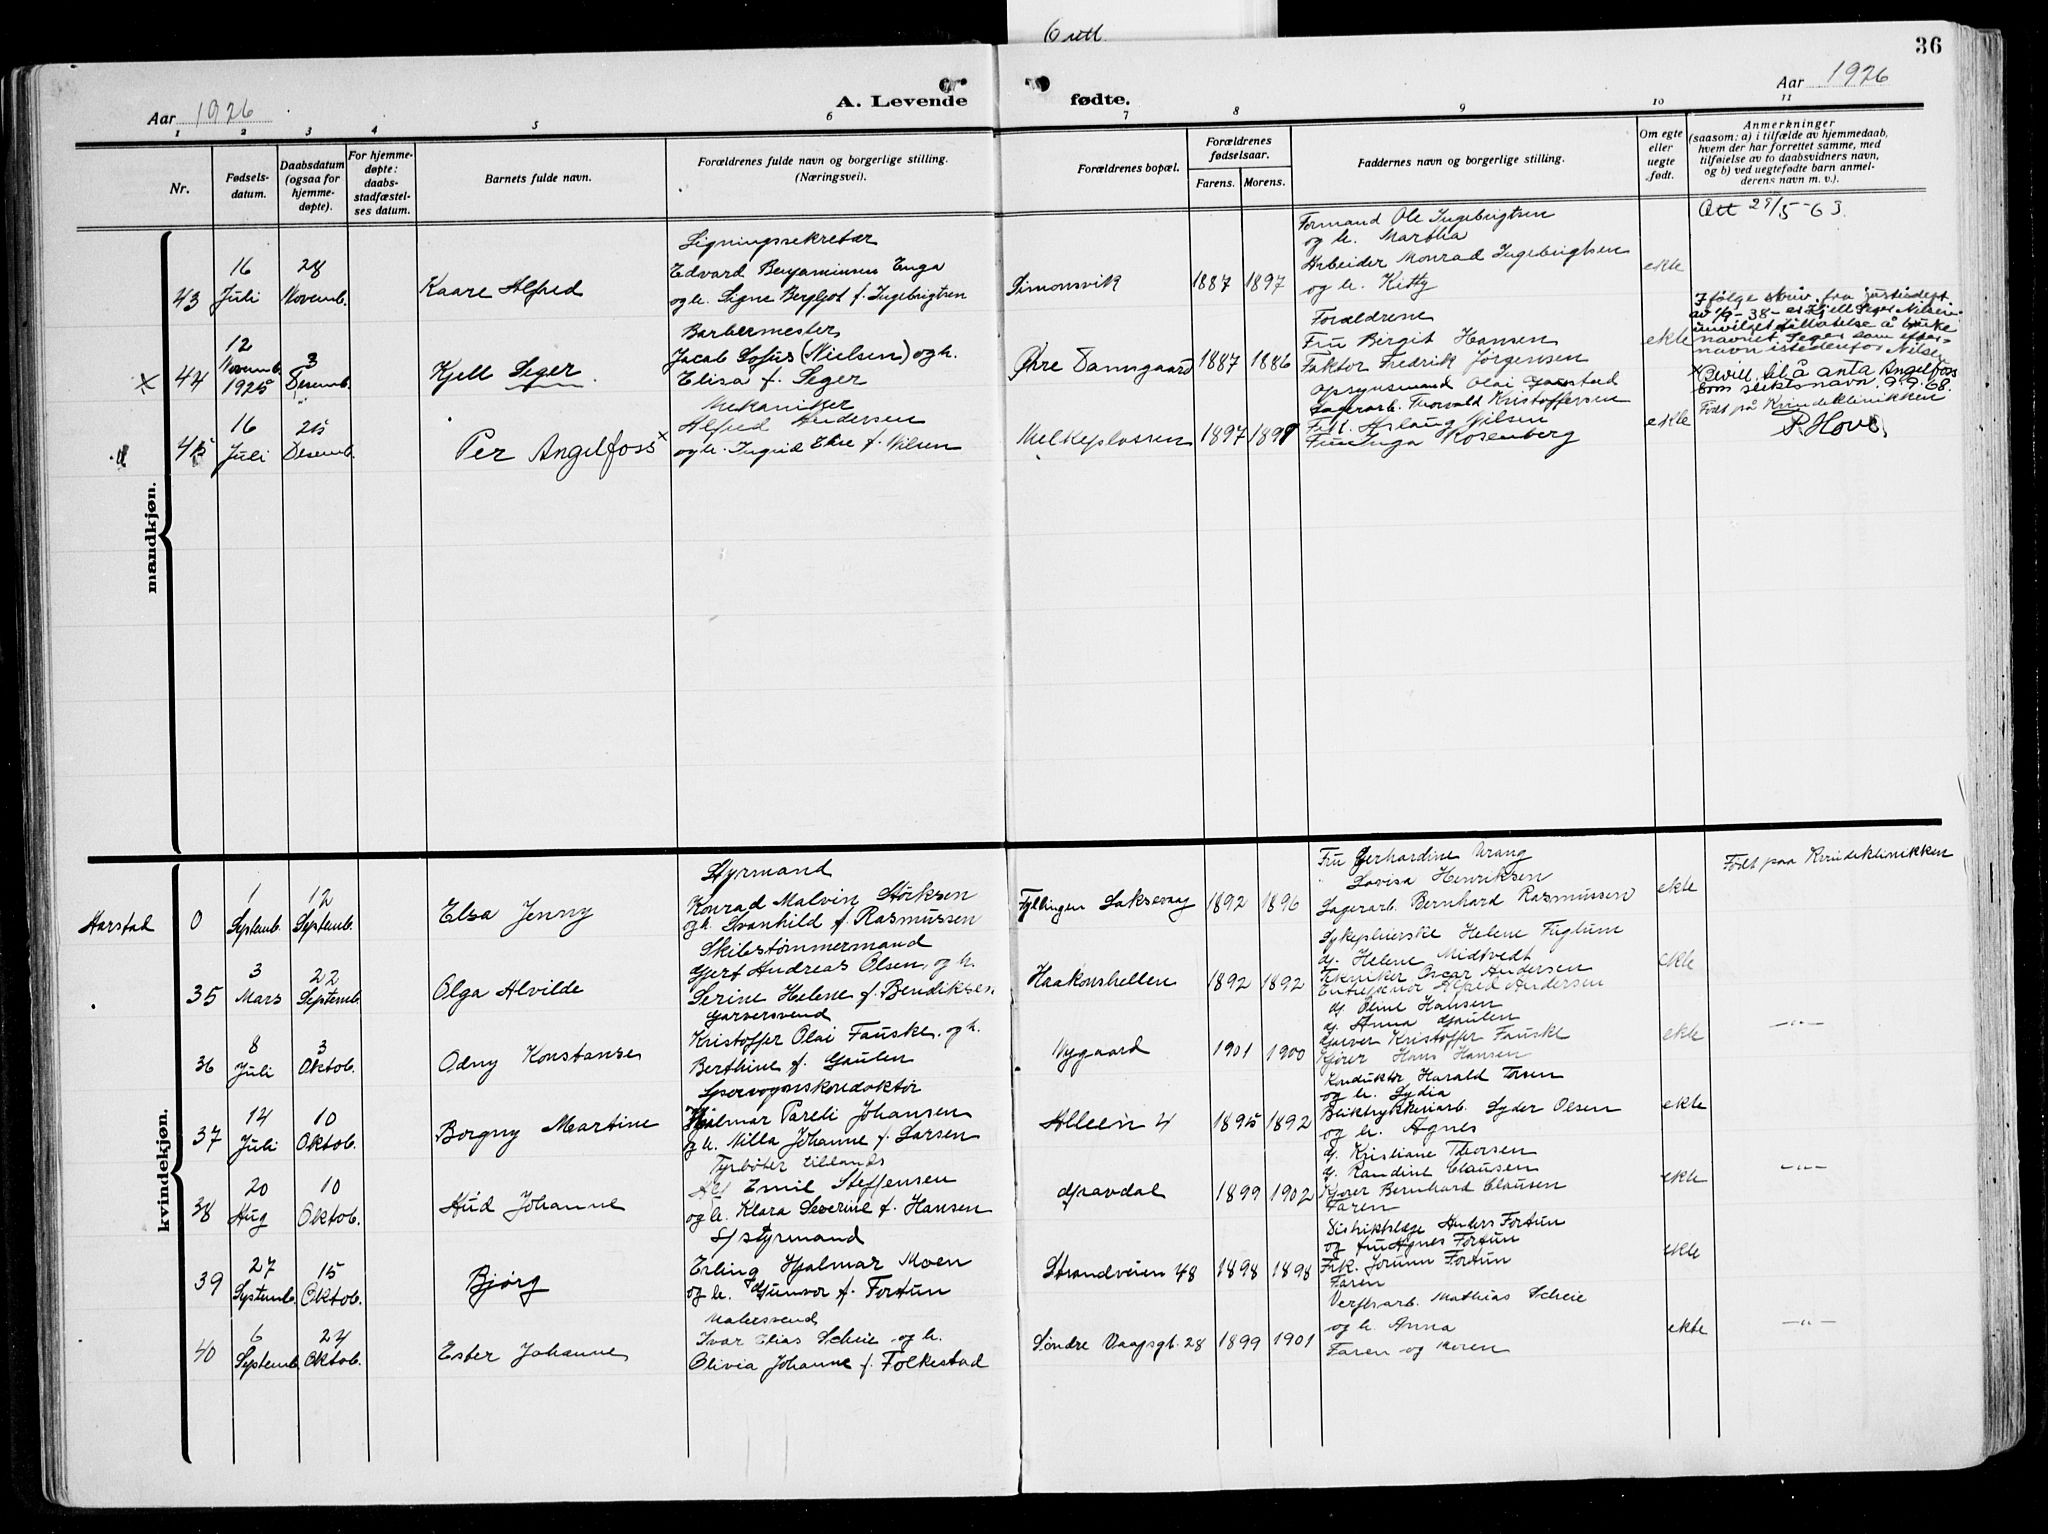 36
Aar 1926
A. Levende
fødte.
Aar 1926
1 2 3 4 5 6 7 8 9 10 11
Nr.
Fødsels-
datum.
Daabsdatum
(ogsaa for
hjemme-
døpte).
For hjemme-
døpte:
daabs-
stadfæstel-
ses datum.
Barnets fulde navn.
Forældrenes fulde navn og borgerlige stilling.
(Næringsvei).
Forældrenes bopæl.
Forældrenes
fødselsaar.
Farens. Morens.
Faddernes navn og borgerlige stilling.
Om egte
eller
uegte
født.
Anmerkninger
(saasom: a) i tilfælde av hjemmedaab,
hvem der har forrettet samme, med
tilføielse av to daabsvidners navn,
og b) ved uegtefødte barn anmel-
derens navn m. v.).
mandkjøn.
43
16
Juli
28
Novemb.
Kaare Alfred
Ligningssekretær
Edvard Benjaminsen Enga
og h. Signe Bergljot f. Ingebrigtsen
Simonsvik
1887 1897
Formand Ole Ingebrigtsen
og h. Martha
Arbeider Monrad Ingebrigtsen
og h. Kitty
Forældrene
ekte
Att 29/5-63.
x 44
12
Novemb.
1925
3
Desemb.
Kjell Seger
Barbermester
Jacob Sofus (Nielsen) og h.
Elisa f. Seger
Øvre Damsgaard
1887 1886
Fru Birgit Hansen
Faktor Fredrik Jørgensen
Opsynsmand Olai
ekte
Ifølge skriv. fra justisdept.
av 1/9-38- er Kjell Seger Nilsen
innvilget tillatelse å bruke
navnet Seger som efter-
navn istedenfor Nilsen
45
16
Juli
25
Desemb.
Per Angelfoss x
Mekaniker
Alfred Andersen
og h. Ingrid Else f. Nilsen
Melkeplassen
1897 1897
Lagerarb. Thorvald Kristoffersen
Frk. Aslaug Nilsen
Fru Inga Rosenberg
ekte
x Bevill. til å anta Angelfoss
som slektsnavn 9.9.68.
Født på Kvindeklinikken
P. Hove.
kvindekjøn.
Aarstad 0
1
Septemb.
12
Septemb.
Elsa Jenny
Styrmand
Konrad Malvin Størksen
og h. Svanhild f. Rasmussen
Fyllingen Laksevaag
1892 1896
Fru Gerhardine Vrang
" Lovisa Henriksen
Lagerarb. Bernhard Rasmussen
ekte
Født paa Kvindeklinikken
35
3
Mars
22
Septemb.
Olga Alvilde
Skibstømmermand
Gjert Andreas Olsen, og h.
Serine Helene f. Bendiksen
Haakonshellen
1892 1892
Sykepleierske Helene Fuglum
G. Helene Midtvedt
Tekniker Oscar Andersen
Entreprenør Alfred Andersen
ekte
36
8
Juli
3
Oktob.
Odny Konstanse
Garversvend
Kristoffer Olai Fauske, og h.
Berthine f. Gaulen
Nygaard
1901 1900
G. Oline Hansen
G. Anna Gaulen
Garver Kristoffer Fauske
Kjører Hans Hansen
ekte
—"—
37
14
Juli
10
Oktob.
Borgny Martine
Sporvognskonduktør
Hjalmar Pareli Johansen
og h. Milla Johanne f. Larsen
Alleen 4
1895 1892
Konduktør Harald Torsen
og h. Lydia
Bliktrykkeriarb. Lyder Olsen
og h. Agnes
ekte
38
20
Aug
10
Oktob.
Aud Johanne
Fyrbøter tillands
Alf Emil Steffensen
og h. Klara Severine f. Hansen
Gravdal
1899 1902
G. Kristiane Thorsen
G. Randine Clausen
Kjører Bernhard Clausen
Faren
ekte
—"—
39
27
Septemb.
15
Oktob.
Bjørg
S/styrmand
Erling Hjalmar Moen
og h. Gunvor f. Fortun
Strandveien 48
1898 1898
Distriktslæge Anders Fortun
og fru Agnes Fortun
Frk. Jorunn Fortun
Faren
ekte
40
6
Septemb.
24
Oktob.
Ester Johanne
Malersvend
Ivar Elias Scheie og h.
Olivia Johanne f. Folkestad
Søndre Vaagsgt. 28
1899 1901
Verftsarb. Mathias Scheie
og h. Anna
Faren og Moren
ekte
—"—